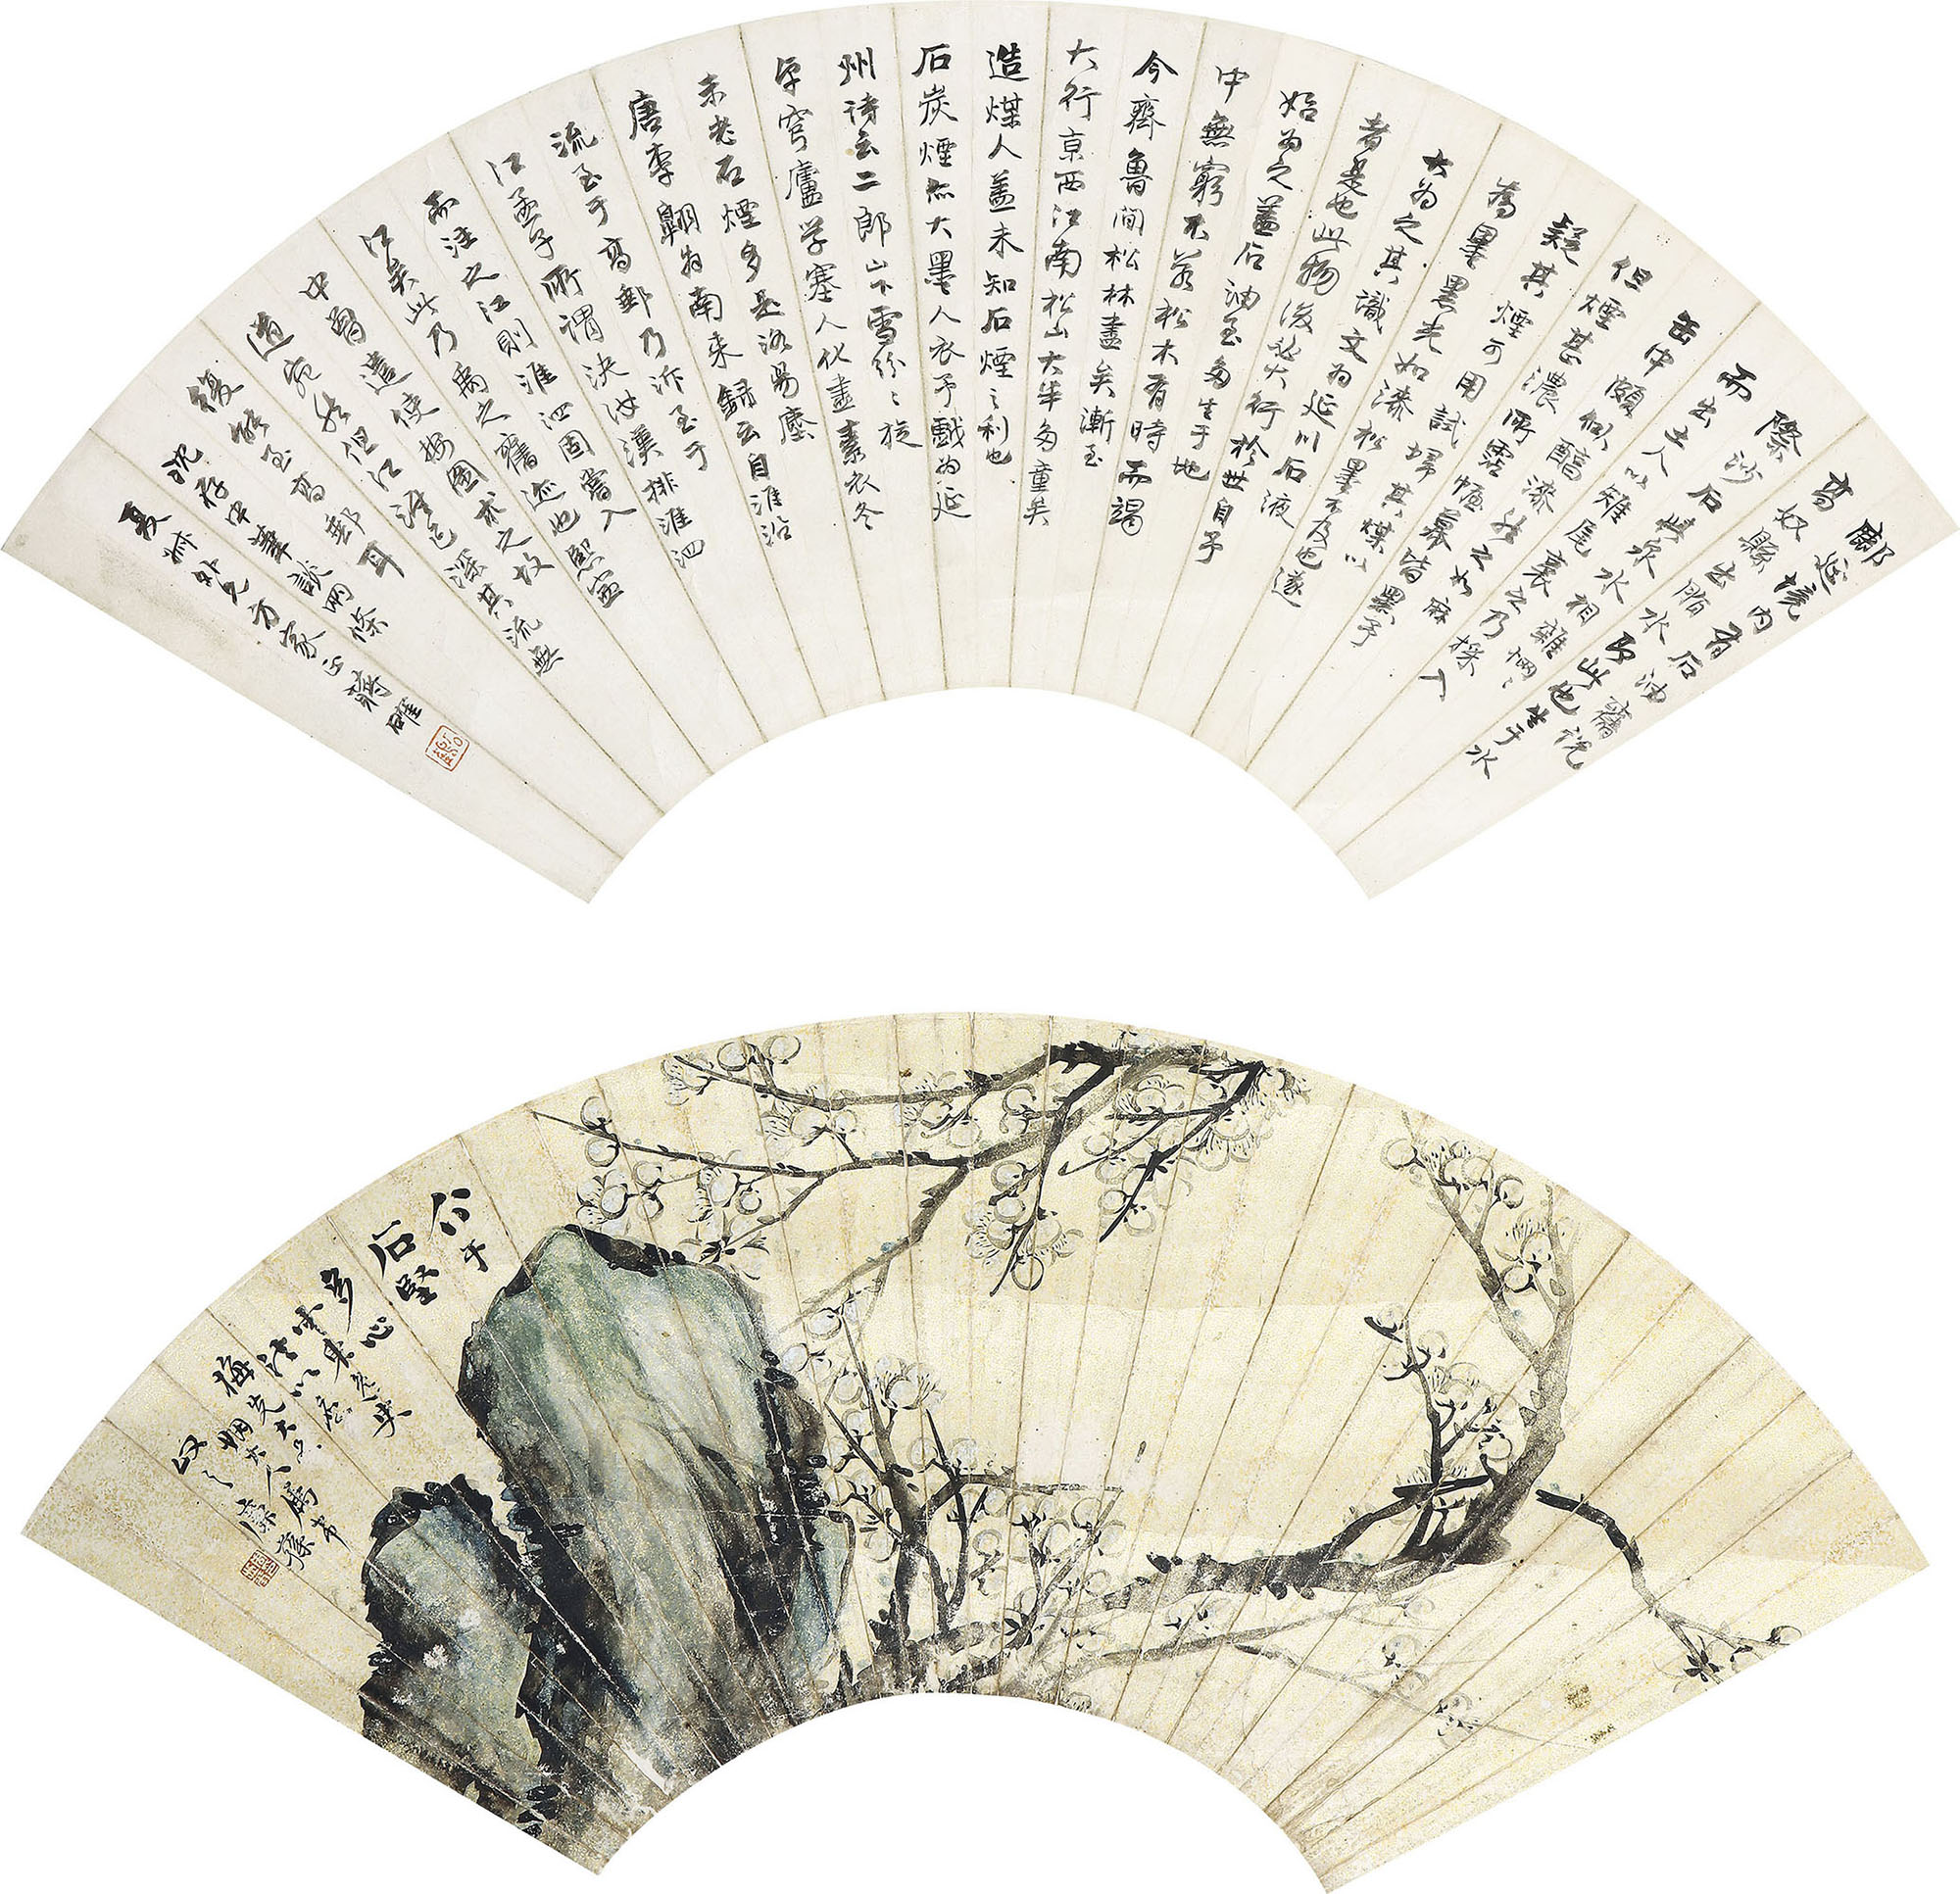 鄜延境內有石油舊說
高奴縣出脂水即此也生于水
際沙石與泉水相雜惘〻
而出土人以雉尾裛之乃採入
缶中頗似醕漆然之如麻
但煙甚濃所霑幄幕皆黑予
疑其煙可用試埽其煤以
為墨黑光如漆松墨不及也遂
大为之其識文为延川石液
者是也此物後必大行於世自予
始为之蓋石油至多生于地
中無窮不若松木有時而竭
今齊魯間松林盡矣漸至
大行京西江南松山大半多童矣
造煤人蓋未知石煙之利也
石炭煙亦大墨人衣予戲为延
州詩云二郎山下雪紛〻旋
卓穹廬学塞人化盡素衣冬
未老石煙多是洛昜塵
唐李翱为南来録云自淮沿
流至于高郵乃泝至于
江孟子所謂決汝漢排淮泗
而注之江則淮泗固嘗入
江矣此乃禹之舊迹也熙寧
中曾遣使按圖求之故
道宛然但江淮已深其流無
復能至高郵耳
沈存中筆談兩條
夏 外兄方家正
介于
石堅
多心